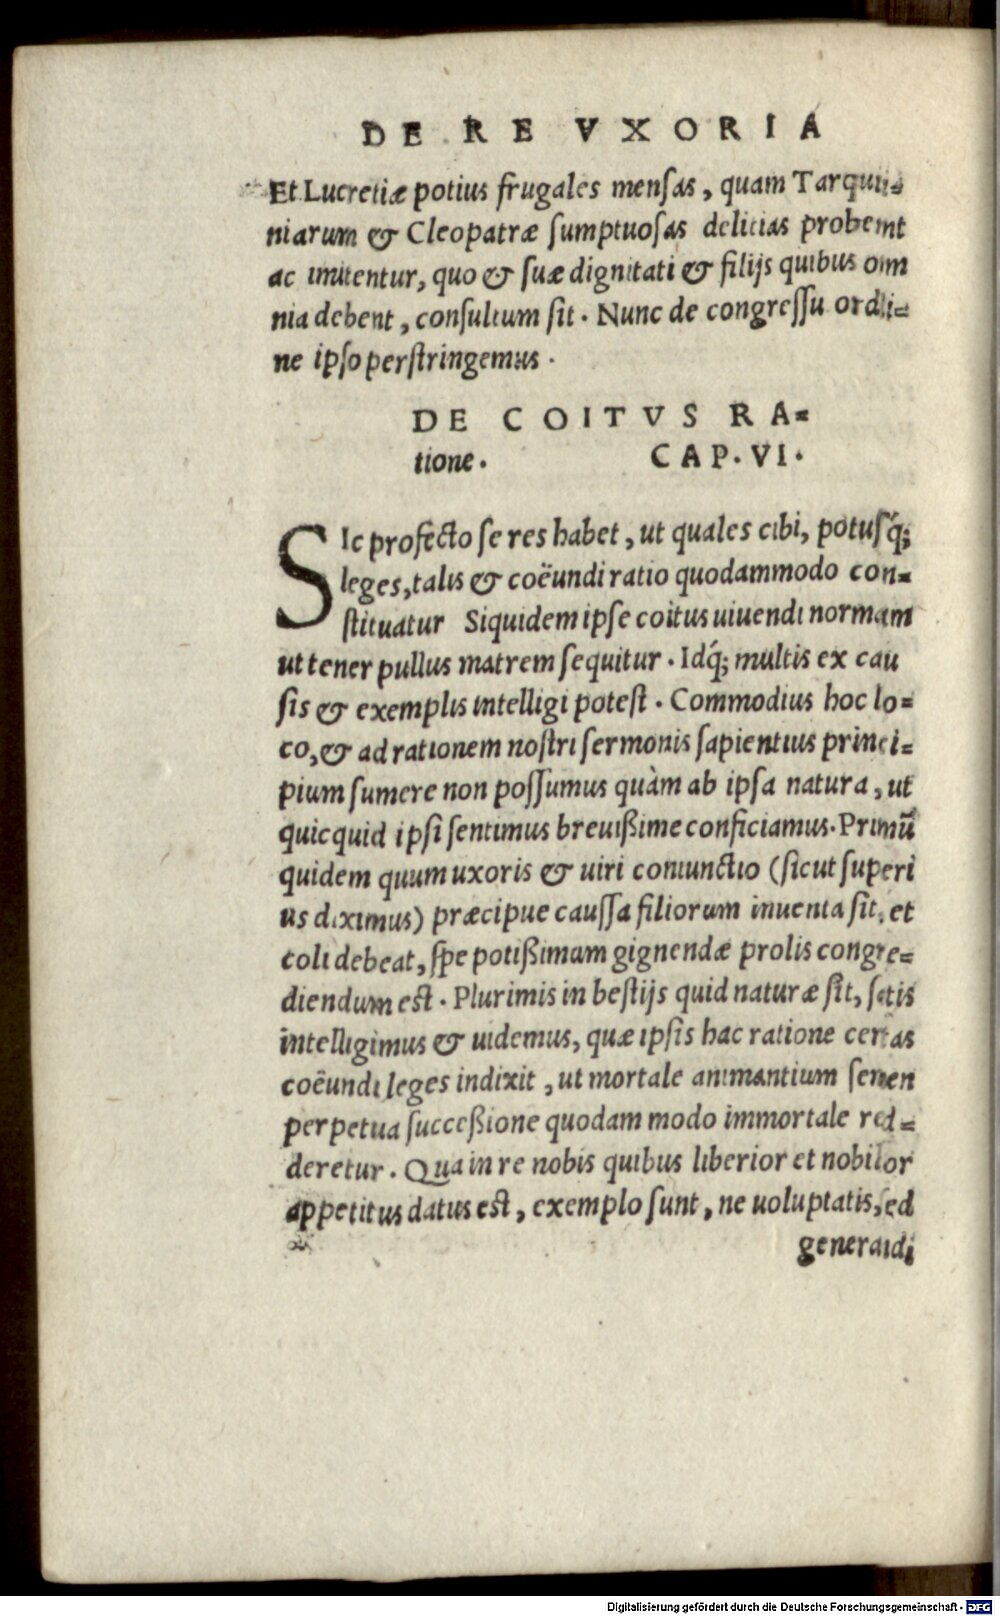 DE RE VXORIA
Et Lucretiæ potius frugales mensas, quam Tarqui=
niarum & Cleopatræ sumptuosas delicias probent
ac imitentur, quo & suæ dignitati & filijs quibus om
nia debent, consultum sit. Nunc de congressu ordi=
ne ipso perstringemus.
DE COITVS RA=
tione. CAP. VI.
SIc profecto se res habet, ut quales cibi, potusq́;
leges, talis & coëundi ratio quodammodo con=
stituatur Siquidem ipse coitus uiuendi normam
ut tener pullus matrem sequitur. Idq́; multis ex cau
sis & exemplis intelligi potest. Commodius hoc lo=
co, & ad rationem nostri sermonis sapientius princi=
pium sumere non possumus quàm ab ipsa natura, ut
quicquid ipsi sentimus breuißime conficiamus. Primũ
quidem quum uxoris & uiri coniunctio (sicut superi
us diximus) præcipue caussa filiorum inuenta sit, et
coli debeat, spe potißimam gignendæ prolis congre=
diendum est. Plurimis in bestijs quid naturæ sit, satis
intelligimus & uidemus, quæ ipsis hac ratione certas
coëundi leges indixit, ut mortale animantium semen
perpetua succeßione quodam modo immortale red=
deretur. Qua in re nobis quibus liberior et nobilior
appetitus datus est, exemplo sunt, ne uoluptatis, sed
generandi
Digitalisierung gefördert durch die Deutsche Forschungsgemeinschaft - DFG